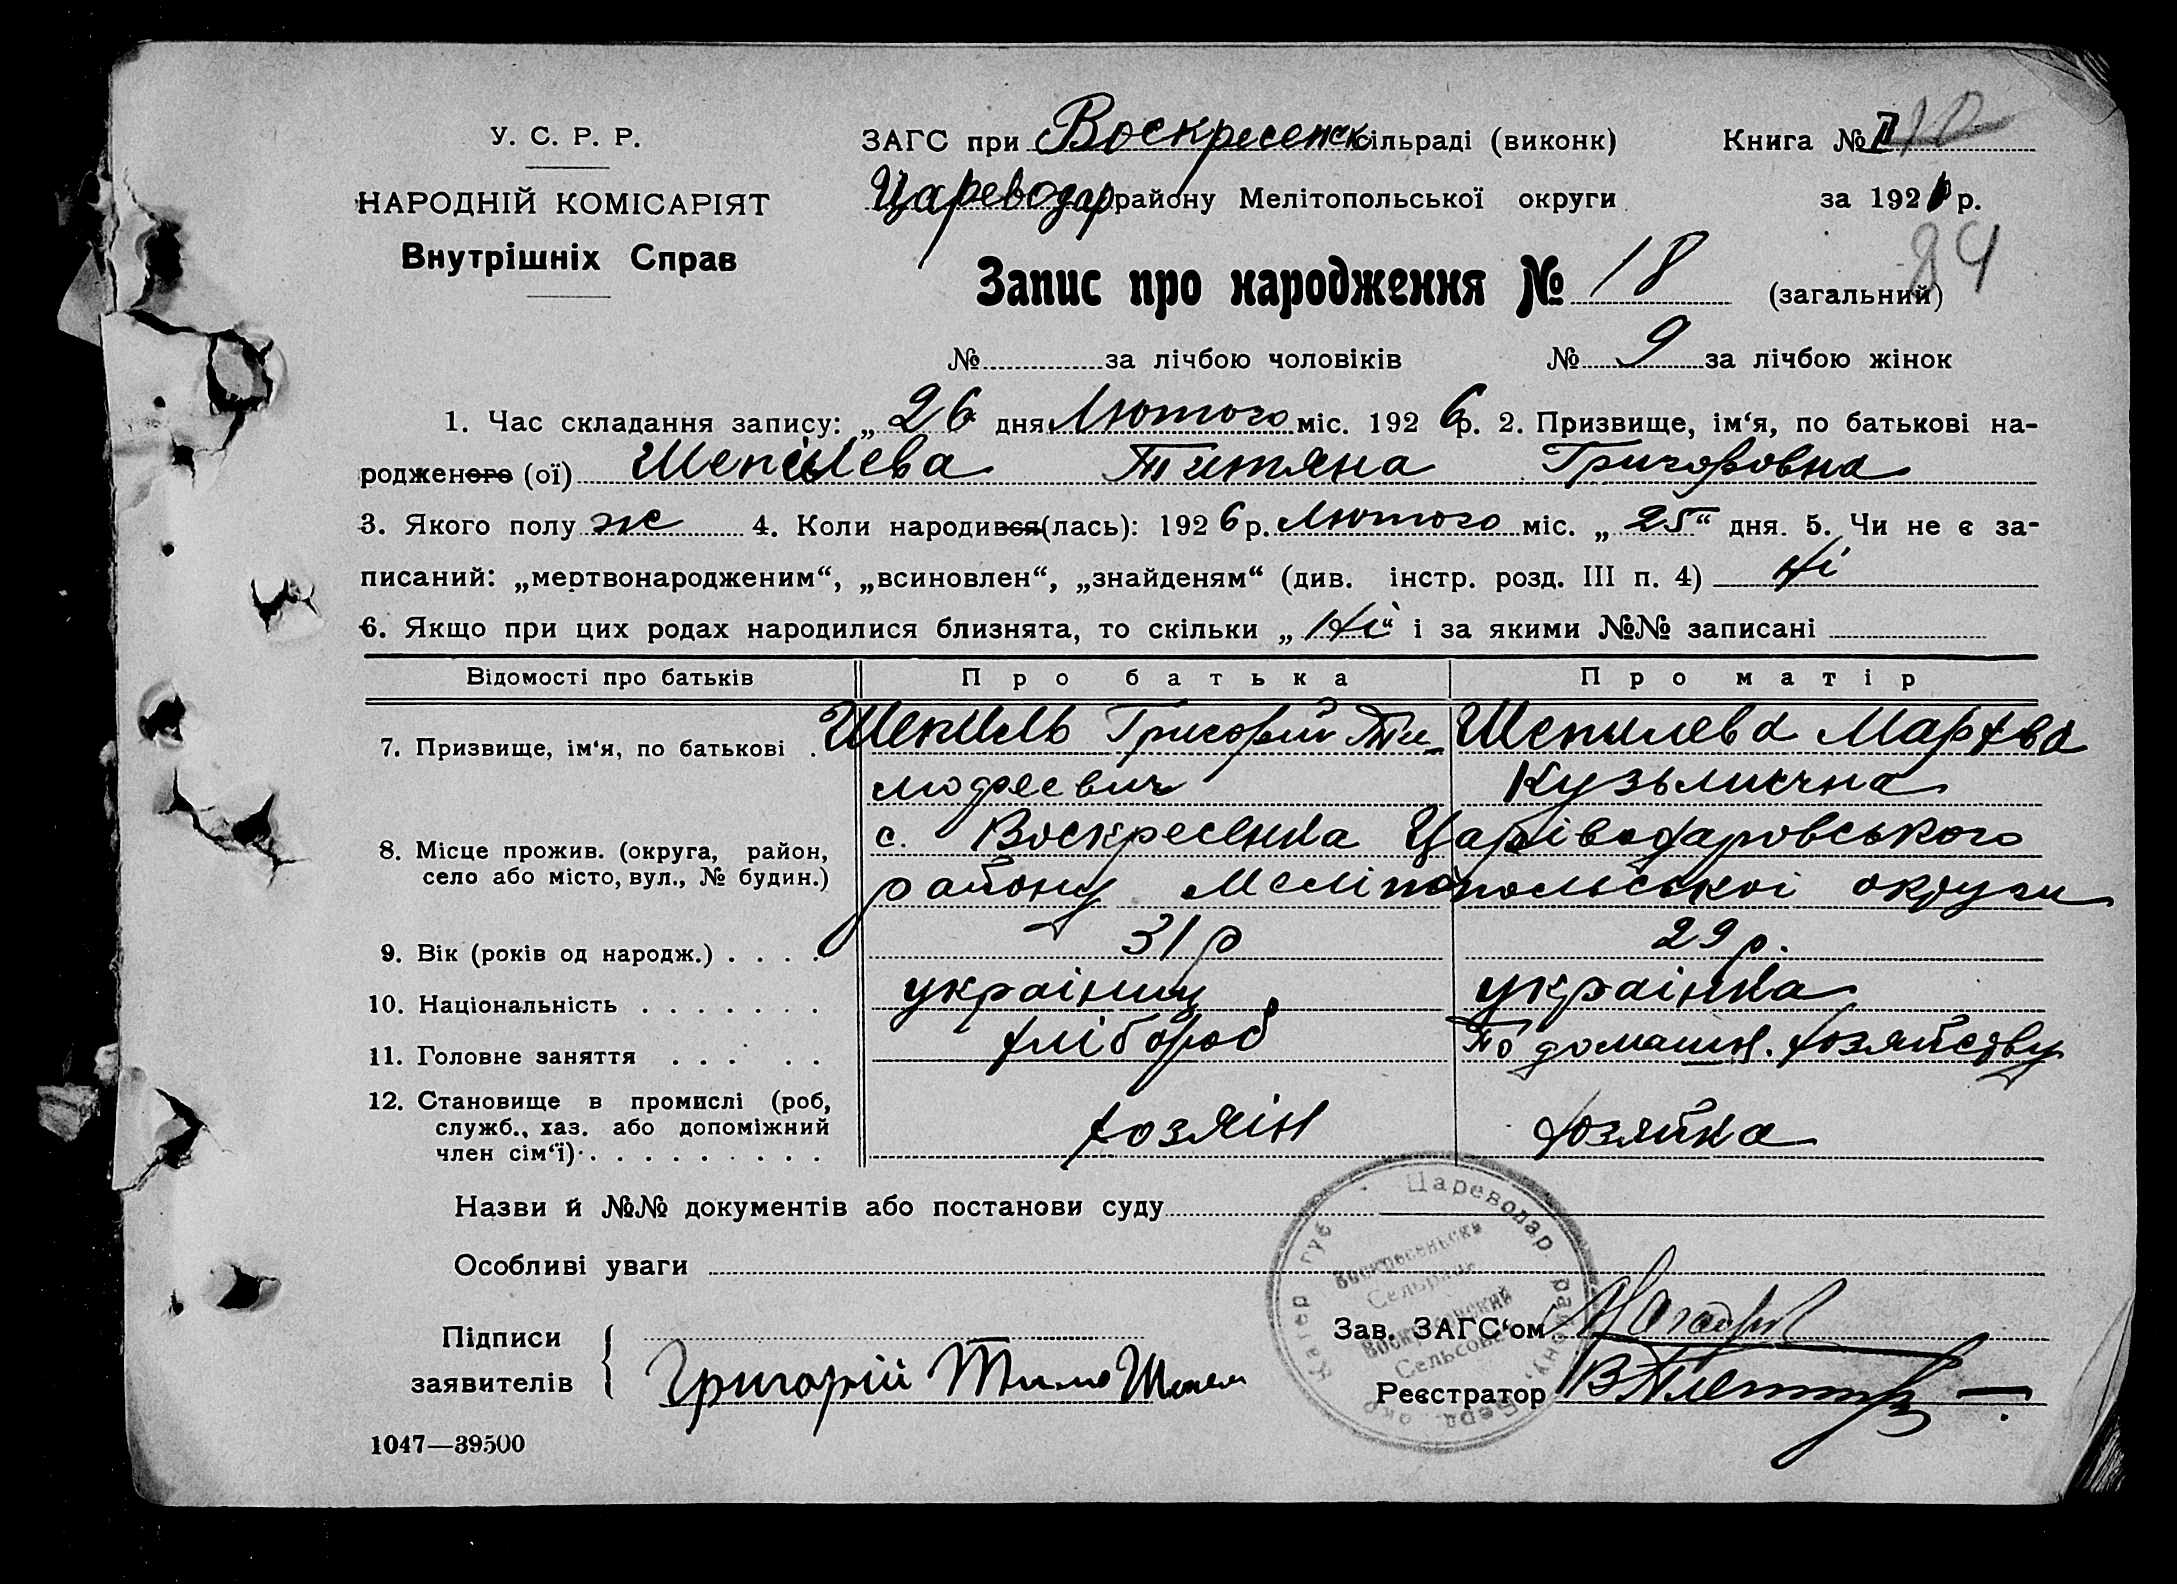 У. С. Р. Р.
НАРОДНІЙ КОМІСАРІЯТ
Внутрішніх Справ
ЗАГС при Воскресенск сільраді (виконк)
Книга №
Цареводар району Мелітопольської округи
за 192 р.
84
Запис про народження № 18 (загальний)
№ за лічбою чоловіків № 9 за лічбою жінок
1. Час складання запису: „ 26 дня Лютого міс. 192 6 р. 2. Призвище, ім‘я, по батькові на-
родженого (ої) Шепилева Титяна Григоровна
3. Якого полу ж 4. Коли народився(лась): 192 6 р. Лютого міс. „ 25 “ дня. 5. Чи не є за-
писаний: „мертвонародженим“, „всиновлен“, „знайденям“ (див. інстр. розд. III п. 4) Ні
6. Якщо при цих родах народилися близнята, то скільки „ Ні “ і за якими №№ записані
Відомості про батьків Про батька Про матір
7. Призвище, ім‘я, по батькові . Шепиль Григорий Ти- Шепилева Мархва
мофеевич Кузьминчна
8. Місце прожив. (округа, район, село або місто, вул., № будин.) с. Воскресенка Царіводаровського
району Мелітопольскоі округи
9. Вік (років од народж.) . . . . 31 р 29 р.
10. Національність . . . . . . . украіниц украінка
11. Головне заняття . . . . . хлібороб По домашн. хозяйству
12. Становище в промислі (роб, служб., хаз. або допоміжний член сім‘ї) . . . . . . . . . хозяін хозяйка
Назви й №№ документів або постанови суду
Особливі уваги
Цареводар району, Берд. окр. Катер губ
Воскресеньска
Сельрада
Воскресенский
Сельсовет
Підписи
заявителів
Григорій Тимо Шепел
Зав. ЗАГС‘ом
Реєстратор
1047—39500